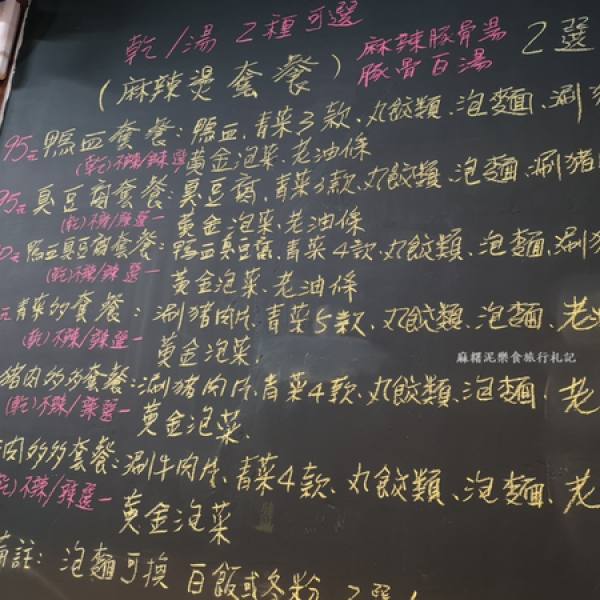 乾/湯 2種可選
麻辣豚骨湯
豚骨白湯
2選
(麻辣燙套餐)
95元鴨血套餐:鴨血、青菜3款、丸餃類、泡麵、涮豬
(乾)不辣/辣選一
黃金泡菜、老油條
95元臭豆腐套餐:臭豆腐、青菜3款、丸餃類、泡麵、涮豬
(乾)不辣/辣選一
黃金泡菜、老油條
0元鴨血臭豆腐套餐:鴨血臭豆腐、青菜4款、丸餃類、泡麵、涮豬
(乾)不辣/辣選一
黃金泡菜、老油條
元青菜多套餐:涮豬肉片、青菜5款、丸餃類、泡麵、老
(乾)不辣/辣選一
黃金泡菜
麻糬泥樂食旅行札記
豬肉多多套餐:涮豬肉片、青菜4款、丸餃類、泡麵、老
(乾)不辣/辣選一
黃金泡菜、
肉多多套餐:涮牛肉片、青菜4款、丸餃類、泡麵、老
乾)不辣/辣選一
黃金泡菜
備註:泡麵可換 白飯或冬粉 2選